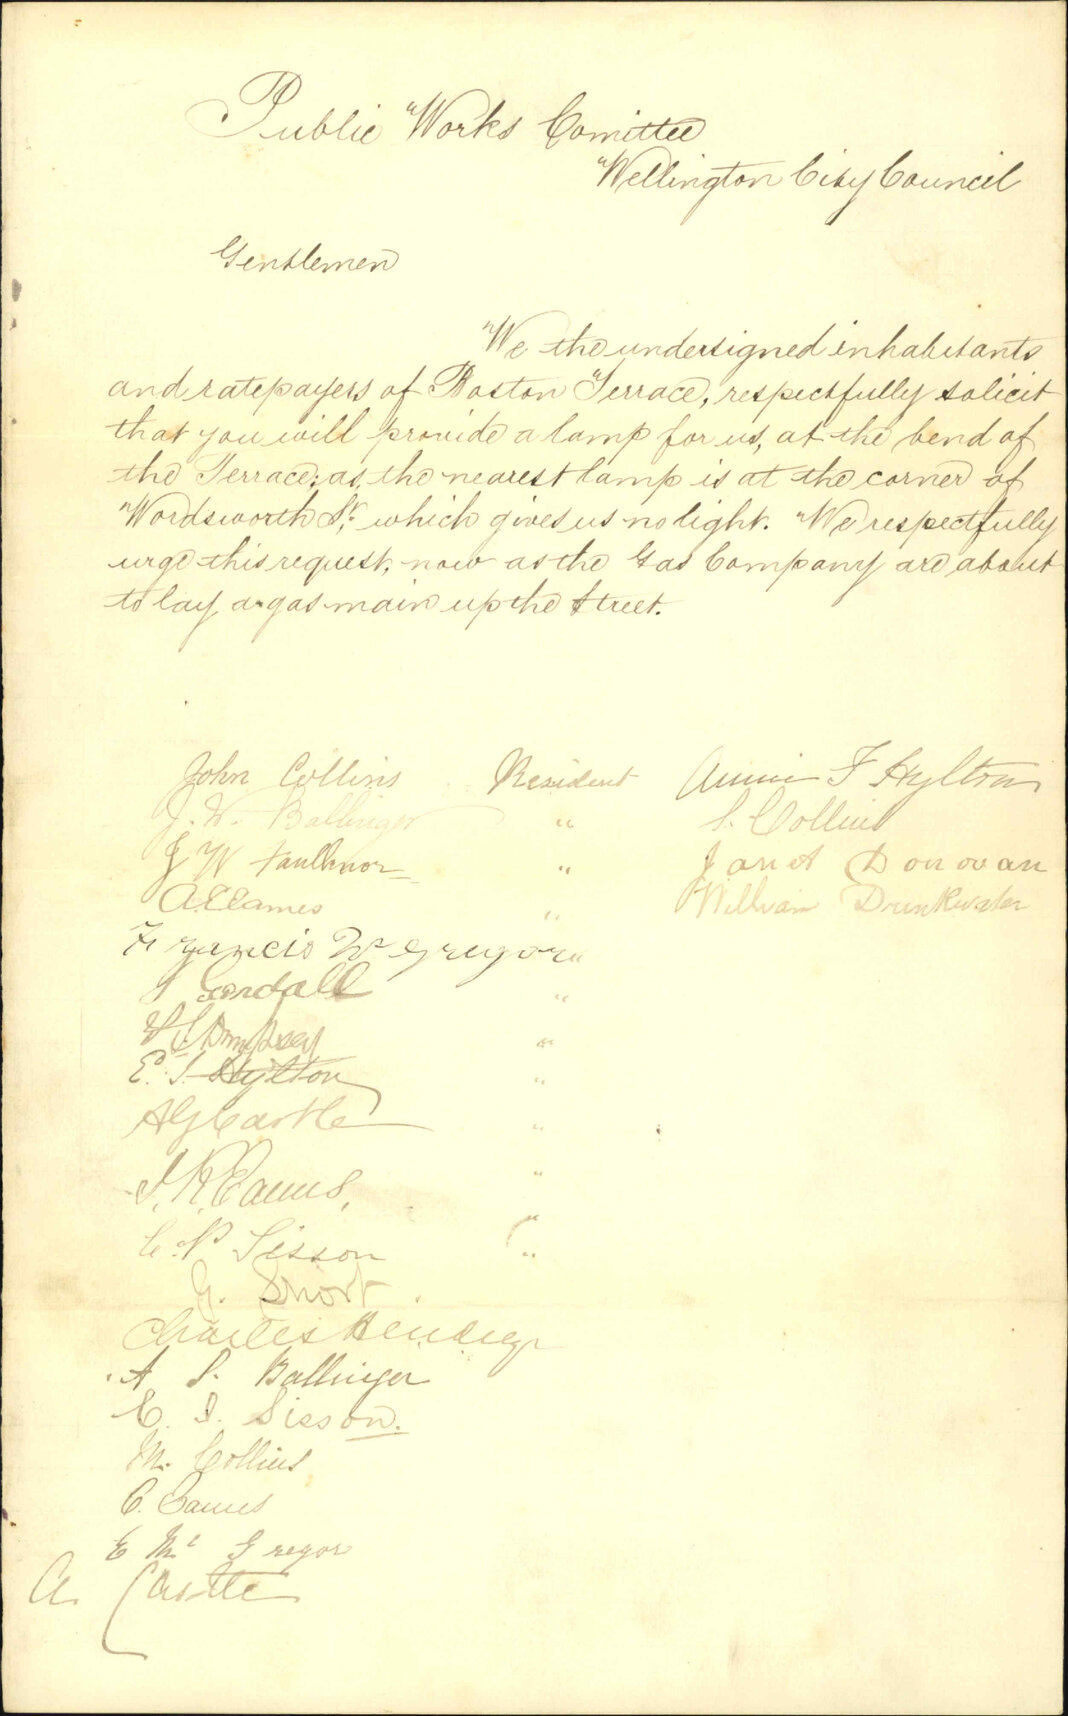 Public Works Comittee
Wellington City Council
Gentlemen
We the undersigned inhabitants
and ratepayers of Boston Terrace, respectfully solicit
that you will provide a lamp for us, at the bend of
the Terrace; as, the nearest lamp is at the corner of
Wordsworth St. which gives us no light. We respectfully
urge this request, now as the Gas Company are about
to lay a gas main up the Street.
John Collins Resident
J. W. Ballinger "
J W Faulknor "
A E Eames "
Francis McGregor "
Cordall "
Dempsey "
E. J. Hylton "
A G Castle "
J. H. Eames. "
C. P. Sisson "
G. Short
Charles
A S. Ballinger
C. I. Sisson.
M. Collins
C. Eames
E Mc Gregor
A. Castle
Annie F Hylton
S. Collins
Janet Donovan
William Drinkwater